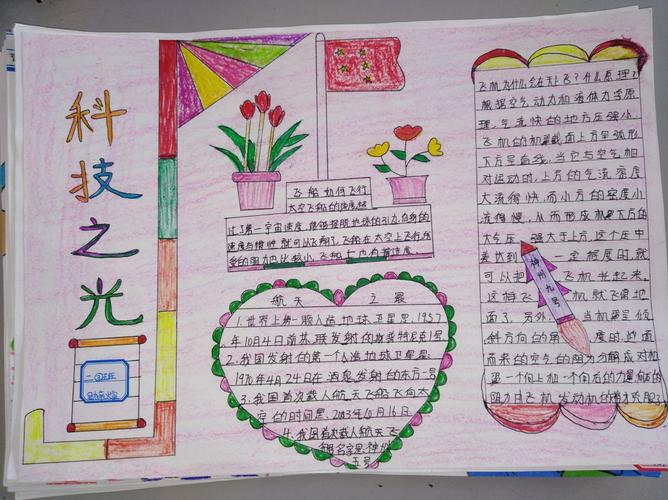 科
技
之
光
二(3)班
飞船如何飞行
太空飞船的速度超
过了第一宇宙速度,能够摆脱地球的引力,自身的
速度与惯性就可以飞翔了,飞船在太空上飞行所
受的阻力也比较小,飞船
航天之最
1.世界上第一颗人造地球卫星是,1957
年10月4日前苏联发射的
2.我国发射的第一个人造地球卫星是
1970年4月24日在酒泉发射的东方一号
3.我国首次载人航天飞船飞向太
空的时间是,2003年10月16日
4.我国首次载人航天飞
船名字是神州
五号
飞机为什么会在天上飞?什么原理?
根据空气动力机液体力学原
理,气流快的地方压强小
飞机的机翼截面上方呈弧形
下方呈直线,当它与空气相
对运动时,上方的气流密度
大流得快,而下方的密度小
流得慢,从而形成机翼下方的
大气压强大于上方,这个压中
差达到一定程度时,就
可以把飞机托起来,
这样飞机就飞离地
面了,另外,当机翼呈倾
斜方向的角度时,迎面
而来的空气的阻力分解成对机
翼一个向上和一个向后的力量,向后的
阻力由飞机发动机的
神州九号